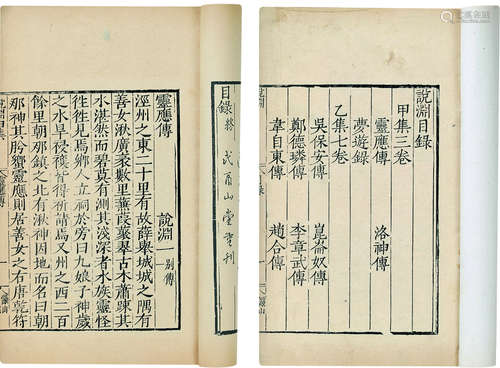 說淵目錄
甲集三卷
靈應傳 洛神傳
夢遊錄
乙集七卷
吳保安傳 崑崙奴傳
鄭德璘傳 李章武傳
韋自東傳 趙合傳
目錄終
靈應傳 說淵一 別傳
涇州之東二十里有故薛舉城城之隅有
善女湫廣袤數里蒹葭叢翠古木蕭疎其
水湛然而碧莫有測其淺深者水族靈怪
往往見焉鄉人立祠於旁曰九娘子神歲
之水旱祲禳皆得祈請焉又州之西二百
餘里朝那鎮之北有湫神因地而名曰朝
那神其肹蠁靈應則居善女之右唐乾符